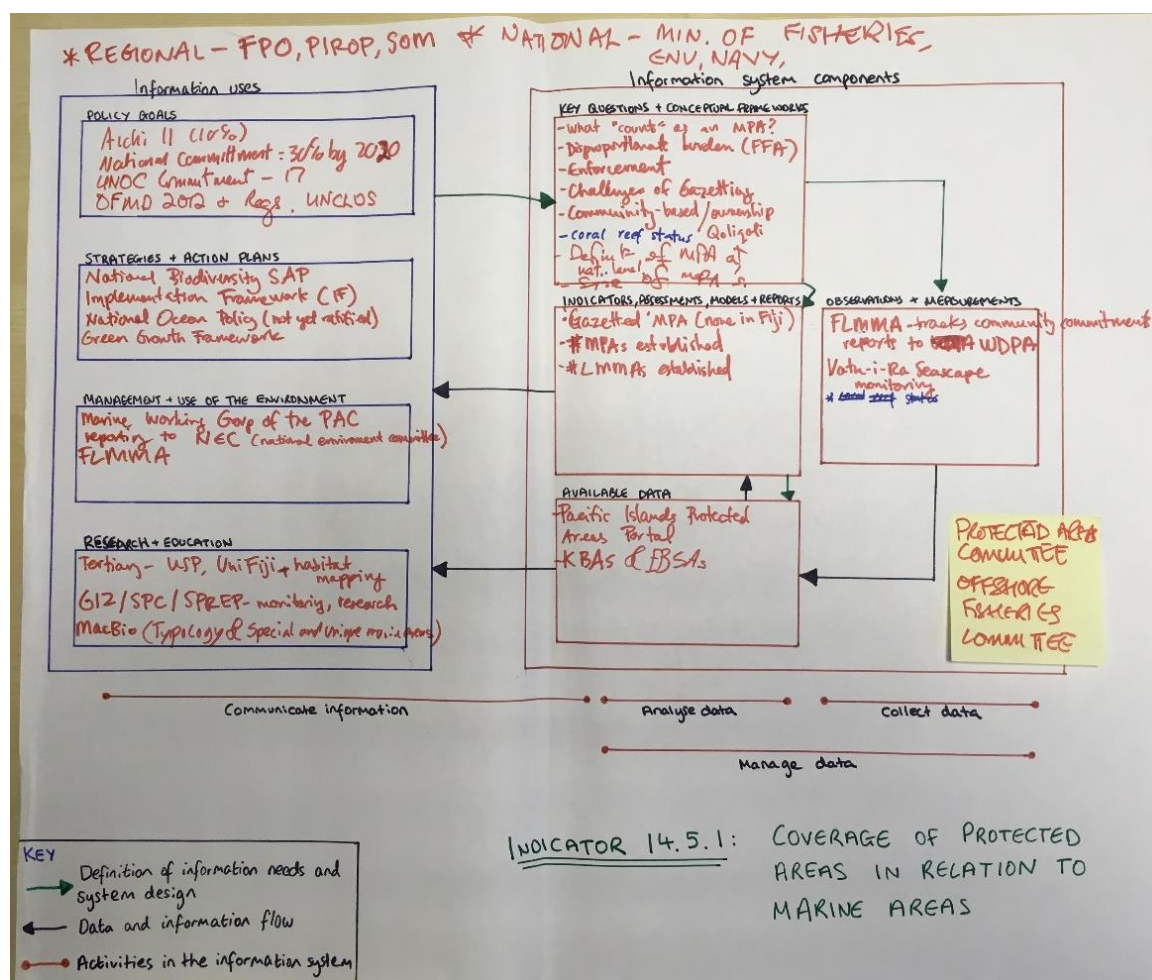 * REGIONAL - FPO, PIROP, SOM * NATIONAL - MIN. OF FISHERIES,
ENV, NAVY,
Information uses
POLICY GOALS
Aichi 11 (10%)
National Committment: 30% by 2020
UNOC Commitment - 17
OFMD 2012 + Regs. UNCLOS
STRATEGIES + ACTION PLANS
National Biodiversity SAP
Implementation Framework (IF)
National Ocean Policy (not yet ratified)
Green Growth Framework
MANAGEMENT + USE OF THE ENVIRONMENT
Marine Working Gorp of the PAC
reporting to NEC (national environment committee)
FLMMA
RESEARCH + EDUCATION
Tertiary - USP, UniFiji + habitat
mapping
GIZ/SPC/SPREP - monitoring, research
MacBio (Typology & Special and Unique marine areas)
Information system components
KEY QUESTIONS + CONCEPTUAL FRAMEWORKS
- What "counts" as an MPA?
- Disproportionate burden (FFA)
- Enforcement
- Challenges of Gazetting
- Community-based/ownership
/ Qoliqoli
- coral reef status
- of MPA at
nat. level
- Size of MPA
INDICATORS, ASSESSMENTS, MODELS + REPORTS
- Gazetted MPA (none in Fiji)
- # MPAs established
- # LMMAs established
OBSERVATIONS + MEASUREMENTS
FLMMA - tracks community commitments
reports to WDPA
Vatu-i-Ra Seascape
monitoring
* reef status
AVAILABLE DATA
- Pacific Islands Protected
Areas Portal
- KBAs & EBSAs
PROTECTED AREAS
COMMITTEE
OFFSHORE
FISHERIES
COMMITTEE
Communicate information
Analyse data
Collect data
Manage data
KEY
Definition of information needs and
system design
Data and information flow
Activities in the information system
INDICATOR 14.5.1: COVERAGE OF PROTECTED
AREAS IN RELATION TO
MARINE AREAS